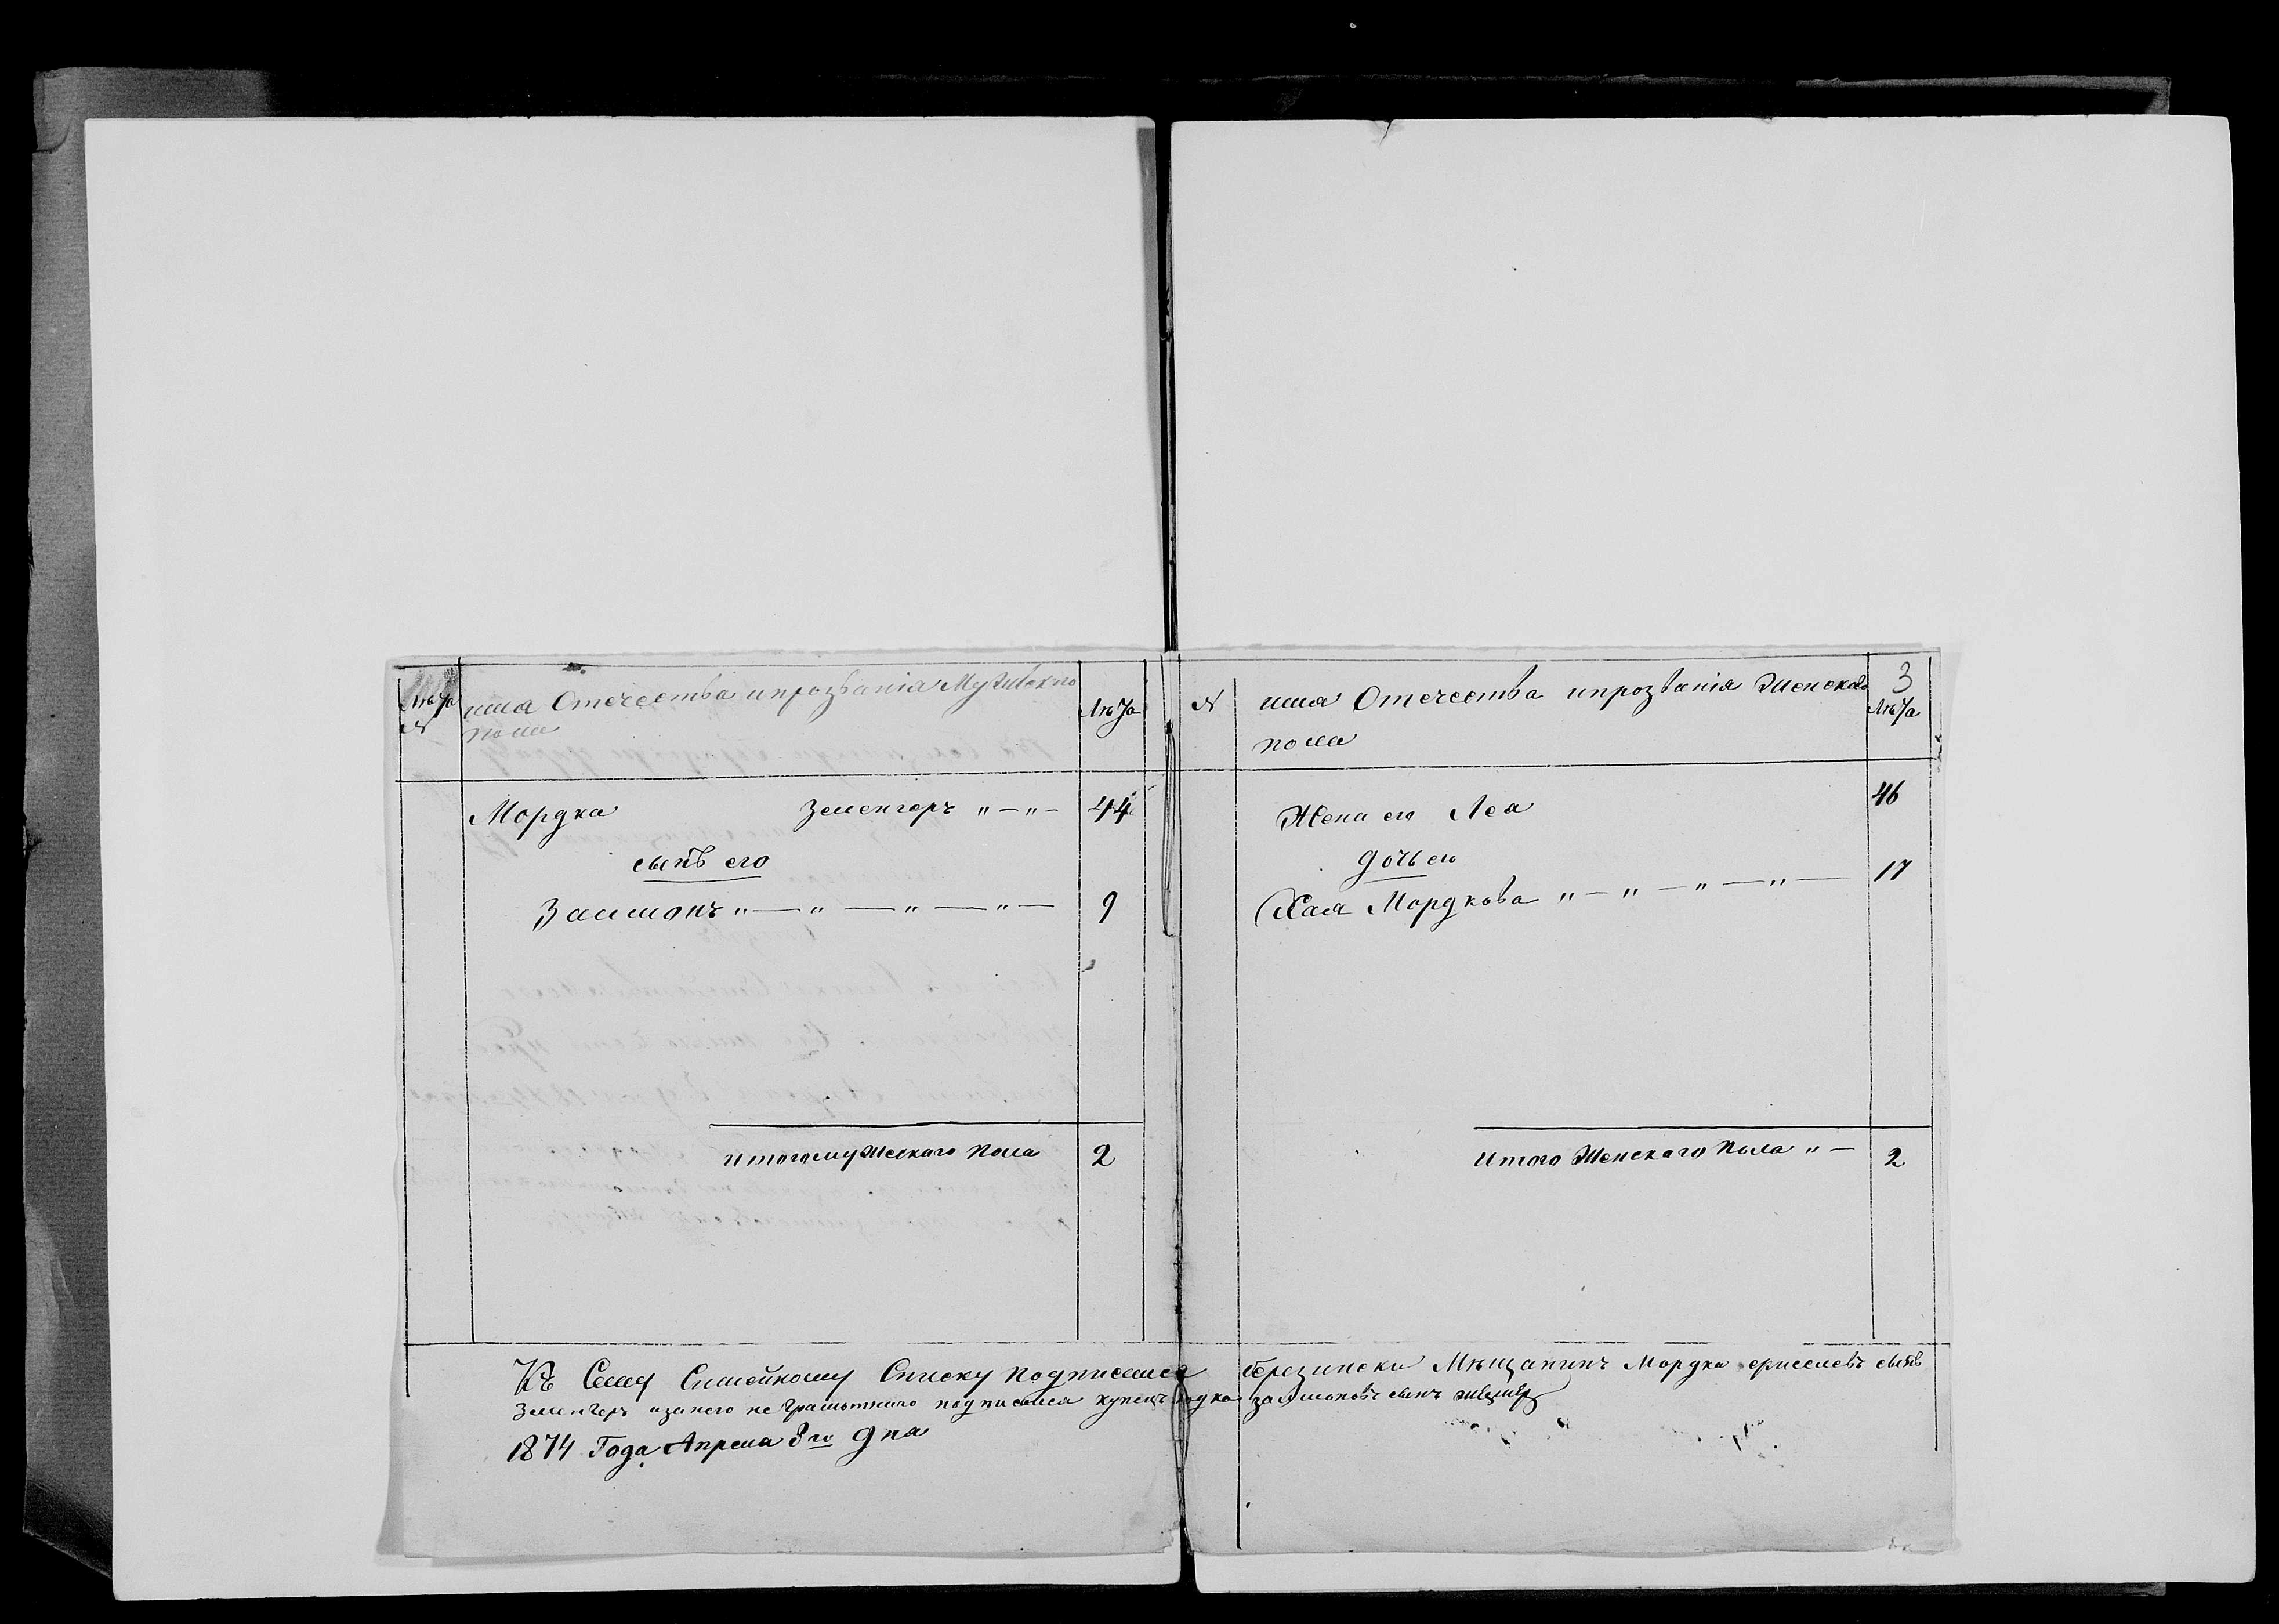 Лѣта
№
имя Отечества ипрозванія Мужскаго
пола
Лѣта
Мордка Зеленгеръ „—„— 44
сынъ его
Залмонъ „—„—„—„— 9
Итого мужескаго пола 2
3
№
имя Отечества ипрозванія Женскаго
Лѣта
пола
Жена его Леа 46
дочь его
Хая Мордкова „—„—„—„— 17
Итого Женскаго пола „— 2
Къ Сему Симейному Списку подписался березински Мѣщанинъ Мордка сынъ
Зеленгеръ изанего не грамотнаго подписался купецъ залмоновъ сынъ
1874 Года Апреля 8го дня